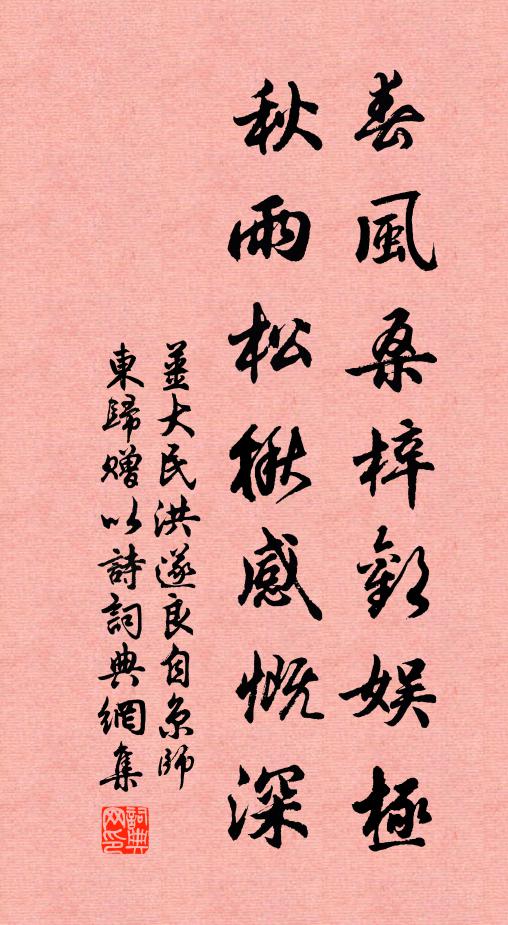 春風桑梓歡娛極
秋雨松楸感慨深
姜大民洪遂良自京師
東歸贈以詩詞典網集
詞典网印